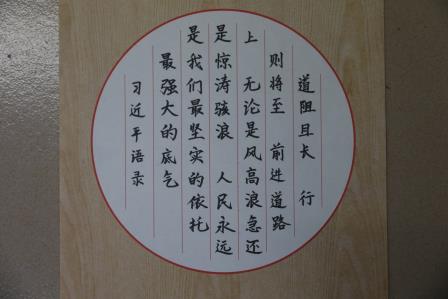 道阻且长 行
则将至 前进道路
上 无论是风高浪急还
是惊涛骇浪 人民永远
是我们最坚实的依托
最强大的底气
习近平语录